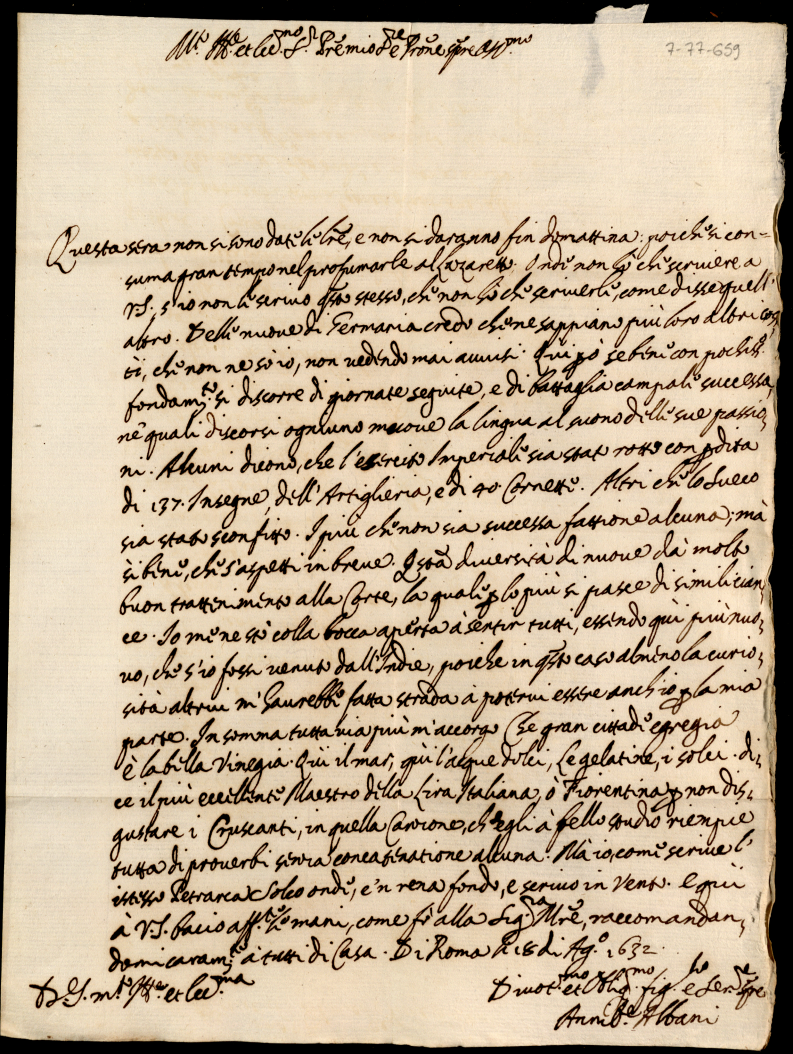 7-77-659
M.to Ill.re et Ecc.mo S.r P.re mio S.re e P.rone sp.re Oss.mo
Questa sera non si sono date le lr̃e, e non si daranno fin domattina: poiche si con=
suma gran tempo nel profumarle al Lazaretto. Onde non hò che scrivere a
V.S. s'io non le scrivo q̃sto stesso, che non hò che scriverle, come disse quell'
altro. Delle nuove di Germania credo che ne sappiano più loro altri cos
tì, che non ne sò io, non vedendo mai avvisi. Quì p̃ò se bene con pochiss.o
fondam.to si discorre di giornate seguite, e di battaglia campale successa,
ne' quali discorsi ogniuno muove la lingua al suono delle sue passio,
ni. Alcuni dicono, che l'esercito Imperiale sia stat rotto con p̱dita
di 137. Insegne, dell'Artiglieria, e di 40. Cornette. Altri che lo Sueco
sia stato sconfitto. I più che non sia successa fattione alcuna; mà
si bene, che s'aspetti in breve. Q̃sta diversità di nuove dà molto
buon trattenimento alla Corte, la quale p̱ lo più si pasce di simili cian,
ce. Io me ne stò colla bocca aperta à sentir tutti, essendo quì più nuo,
vo, che s'io fossi venuto dall'Indie, poiche in q̃sto caso almeno la curio,
sità altrui m'haurebbe fatta strada à potervi essere anch'io p̱ la mia
parte. In somma tuttavia più m'accorgo Che gran città di egregia
è la bella Vinegia. Qui il mar, quì l'acque dolci, Le gelatine, i solci. di,
ce il più eccellente Maestro della Lira Italiana, ò Fiorentina p̱ non dis,
gustare i Cruscanti, in quella Canzone, ch'egli à bello studio riempie
tutta di proverbi senza concatinatione alcuna. Mà io, come scrive l'
istesso Petrarca Solco onde, e'n rena fondo, e scrivo in vento. E quì
à V.S. bacio aff.te le mani, come fò alla Sig.ra Mr̃e, raccomandan,
domi caram.te à tutti di Casa. Di Roma li 18 di Ag.o 1632.
Di V.S. m.to Ill.re et Ecc.ma
Divot.mo et Obblig.mo fig.lo e Ser.re sp̃re
Annib.le Albani